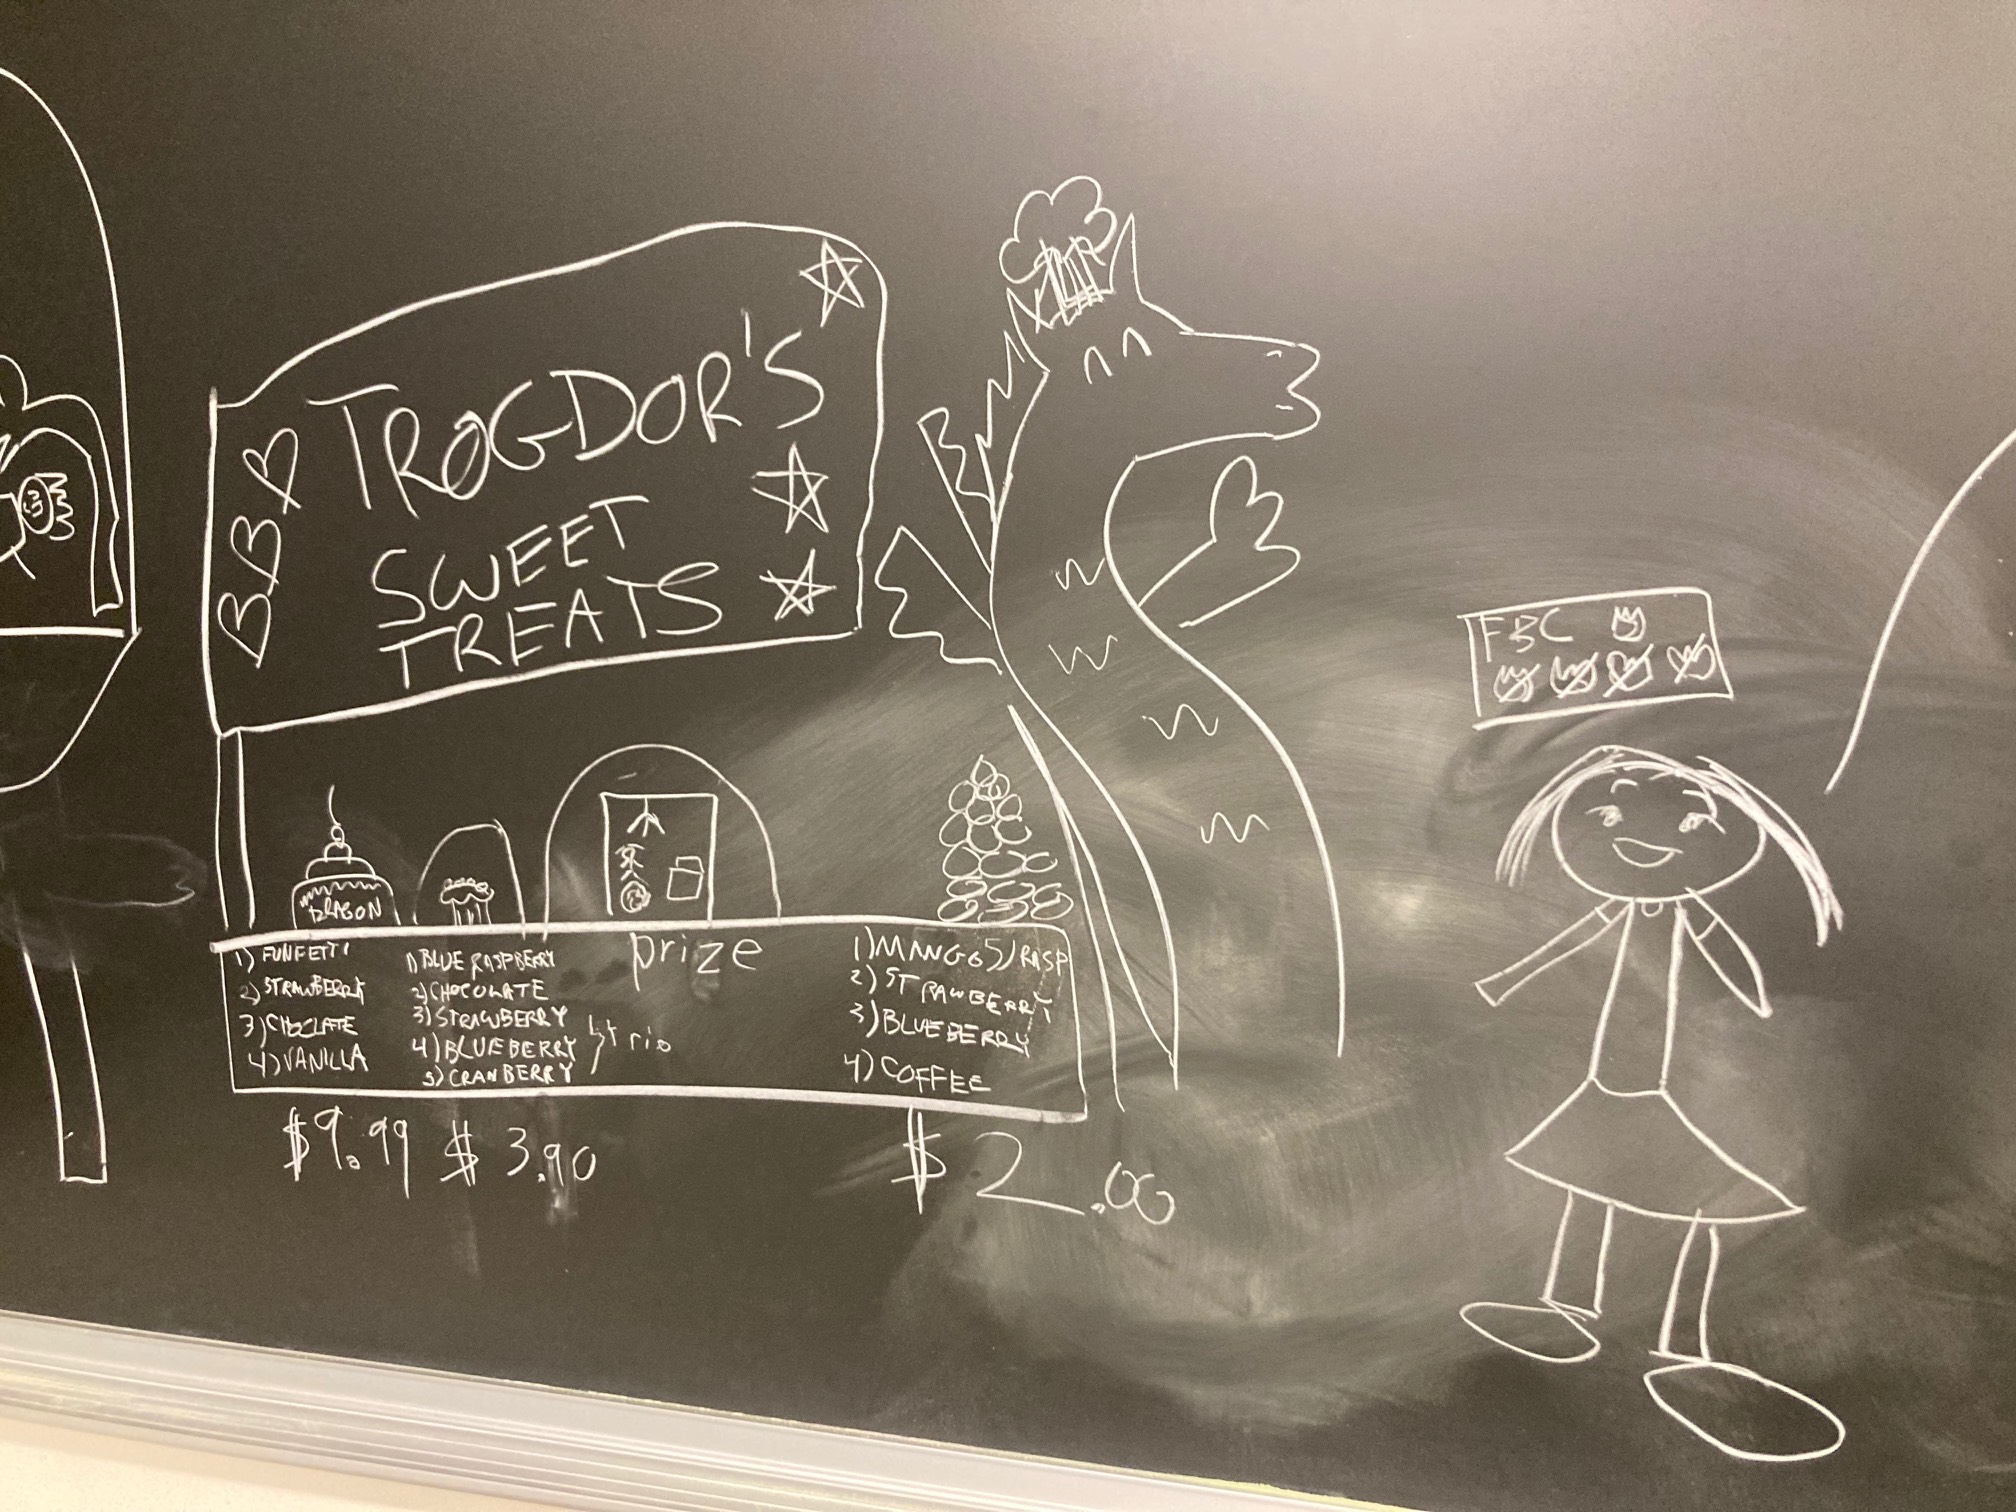 TROGDOR'S
SWEET
TREATS
FBC
DRAGON
1) FUNFETTI
2) STRAWBERRY
3) CHOCLATE
4) VANILLA
1) BLUE RASPBERRY
2) CHOCOLATE
3) STRAWBERRY
4) BLUEBERRY
5) CRANBERRY
trio
prize
1) MANGO
2) STRAWBERRY
3) BLUEBERRY
4) COFFEE
5) RASP
$9.99
$3.90
$2.00